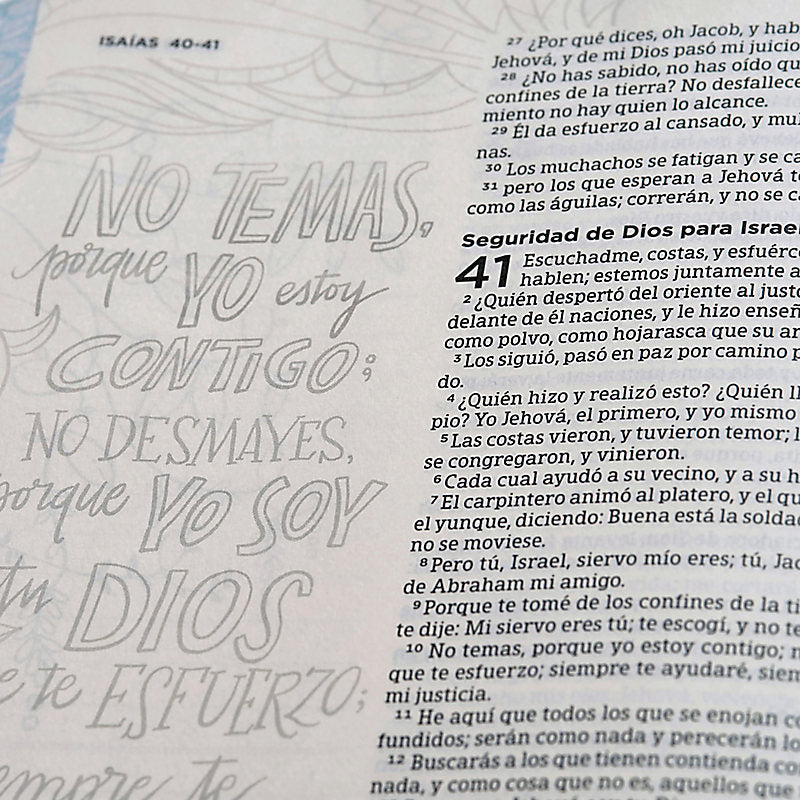 ISAÍAS 40-41
NO TEMAS,
porque YO estoy
CONTIGO;
NO DESMAYES,
porque YO SOY
tu DIOS
te ESFUERZO;
te
27 ¿Por qué dices, oh Jacob, y
Jehová, y de mi Dios pasó mi juicio
28 ¿No has sabido, no has oído
confines de la tierra? No desfallece
miento no hay quien lo alcance.
29 Él da esfuerzo al cansado, y
nas.
30 Los muchachos se fatigan y se
31 pero los que esperan a Jehová
como las águilas; correrán, y no se
Seguridad de Dios para Israel
41 Escuchadme, costas, y
hablen; estemos juntamente a
2 ¿Quién despertó del oriente al justo
delante de él naciones, y le hizo
como polvo, como hojarasca que su
3 Los siguió, pasó en paz por camino
do.
4 ¿Quién hizo y realizó esto? ¿Quién
pio? Yo Jehová, el primero, y yo mismo
5 Las costas vieron, y tuvieron temor;
se congregaron, y vinieron.
6 Cada cual ayudó a su vecino, y a su
7 El carpintero animó al platero, y el
el yunque, diciendo: Buena está la
no se moviese.
8 Pero tú, Israel, siervo mío eres; tú,
de Abraham mi amigo.
9 Porque te tomé de los confines de la
te dije: Mi siervo eres tú; te escogí, y no
10 No temas, porque yo estoy contigo;
que te esfuerzo; siempre te ayudaré,
mi justicia.
11 He aquí que todos los que se enojan
fundidos; serán como nada y perecerán
12 Buscarás a los que tienen contienda
nada, y como cosa que no es, aquellos que